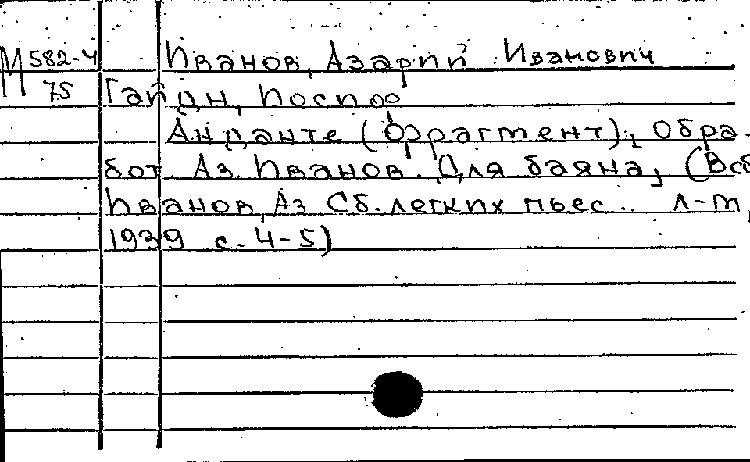 М 582-4 Иванов, Азарий Иванович
75 Гайдн, Иосиф
Анданте (фрагмент), Обра-
бот. Аз. Иванов. Для баяна, (Всб
Иванов, Аз Сб. легких пьес.. Л-М,
1939 с. 4-5)